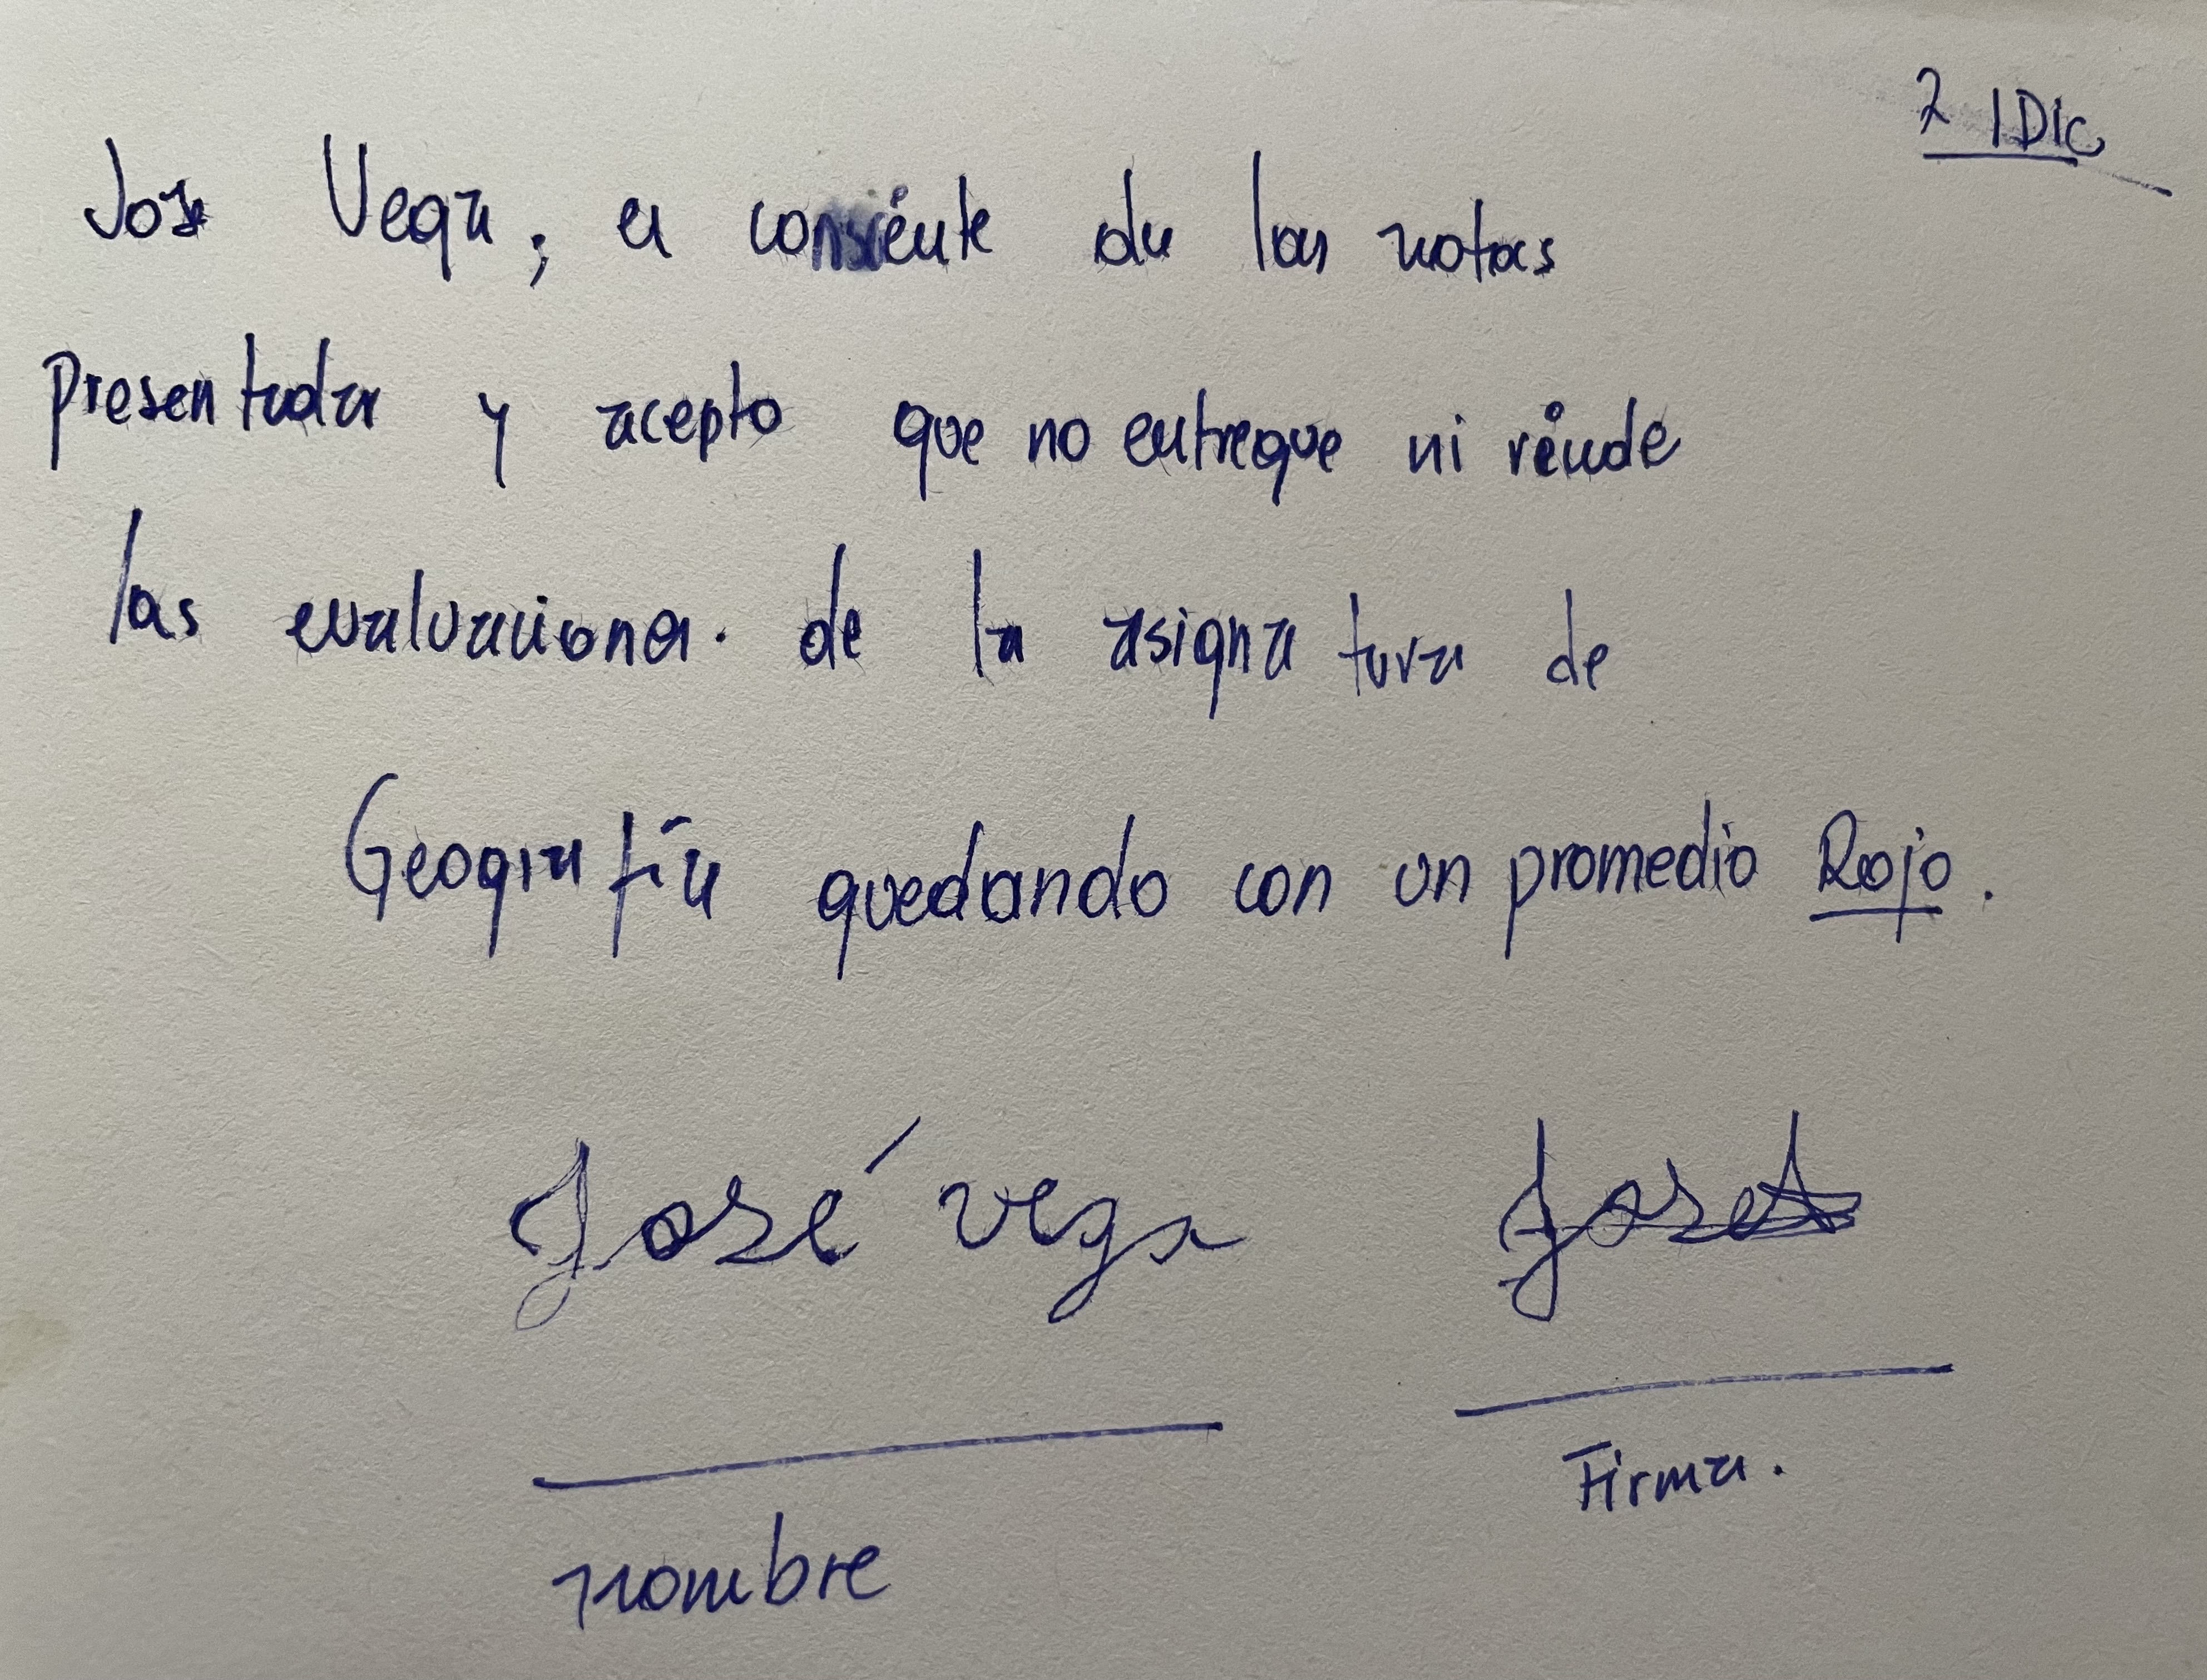 2 / Dic
Jose Vega; es consiente de las notas
presentadas y acepto que no entregue ni rinde
las evaluaciones. de la asignatura de
Geografía quedando con un promedio Rojo.
José vega José
Firma.
nombre